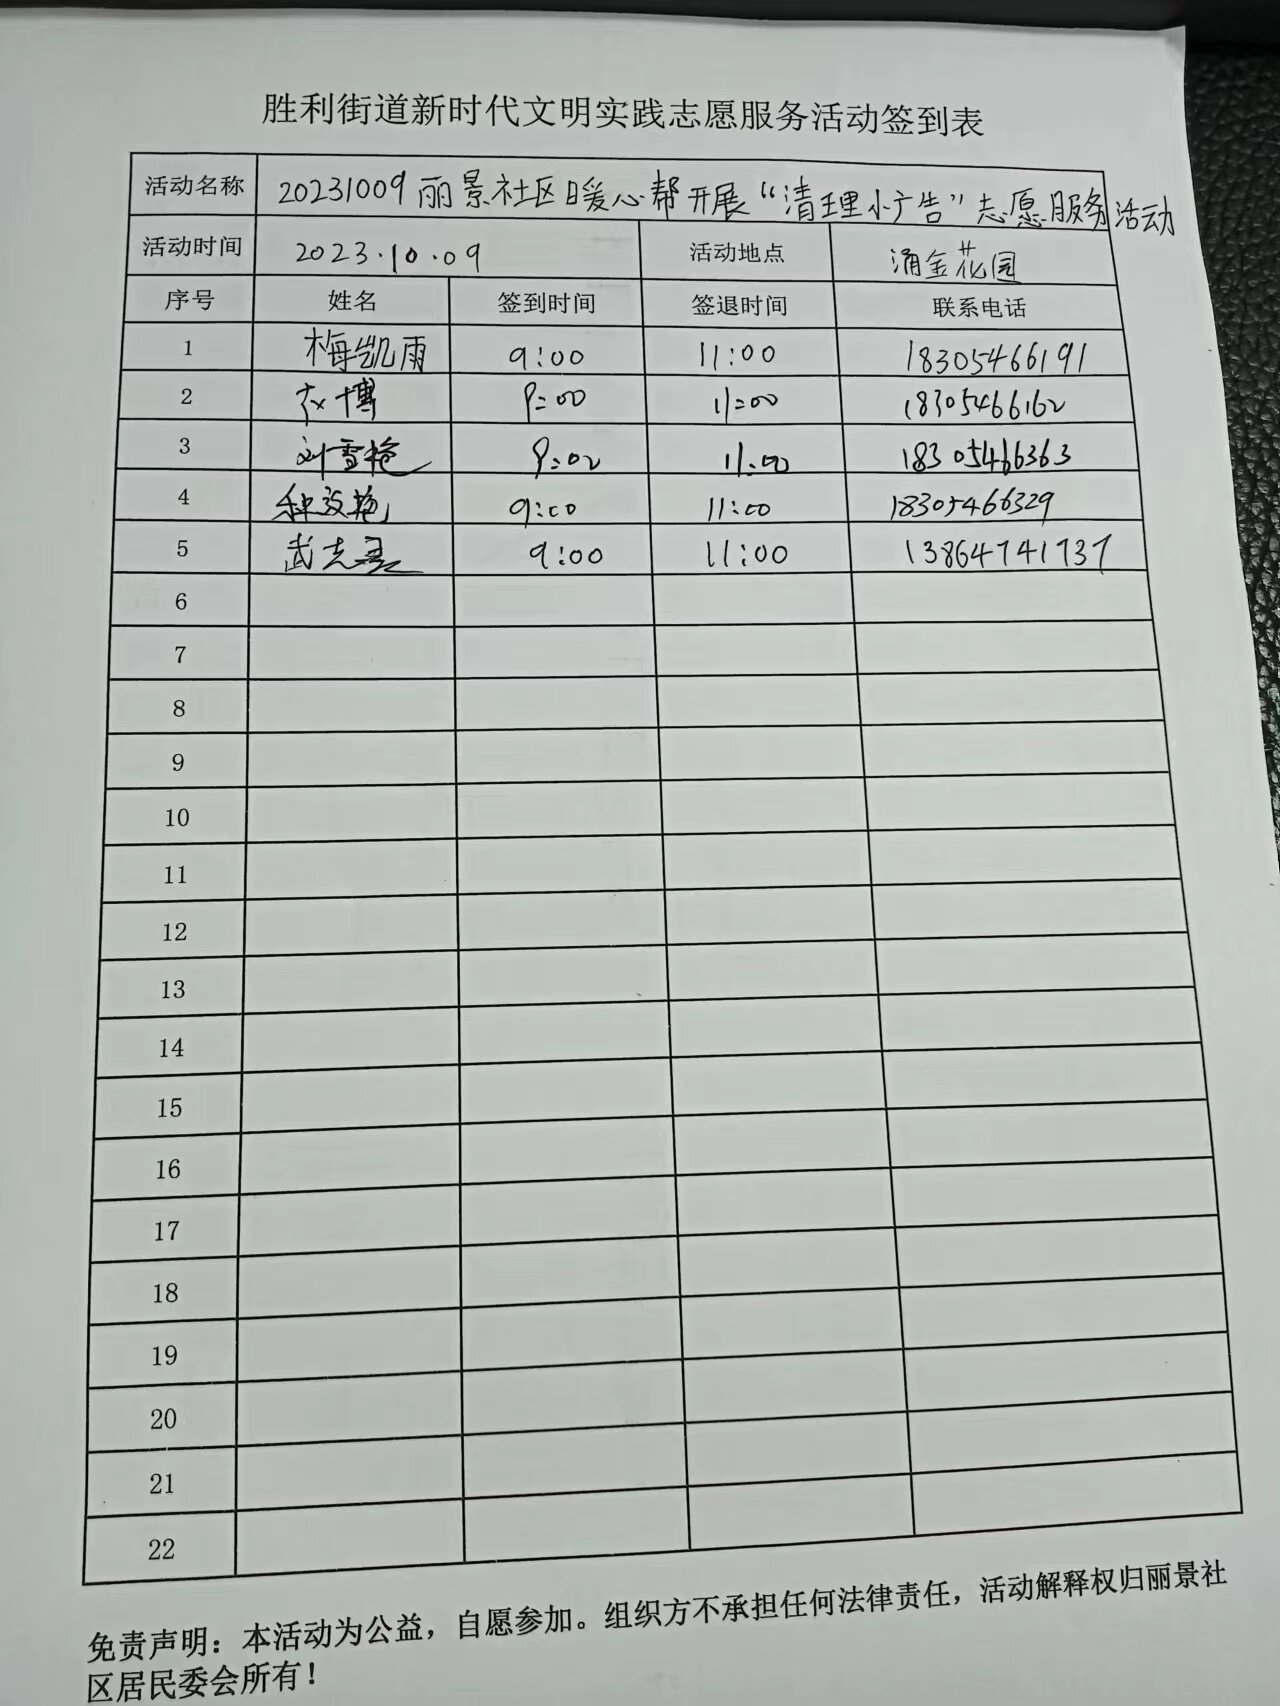 胜利街道新时代文明实践志愿服务活动签到表
活动名称 20231009丽景社区暖心帮开展“清理小广告”志愿服务活动
活动时间 2023.10.09 活动地点 涌金花园
序号 姓名 签到时间 签退时间 联系电话
1 梅凯雨 9:00 11:00 18305466191
2 博 9:00 11:00 18305466162
3 刘雪艳 9:00 11:00 18305466363
4 9:00 11:00 18305466329
5 武志 9:00 11:00 13864741737
6
7
8
9
10
11
12
13
14
15
16
17
18
19
20
21
22
免责声明：本活动为公益，自愿参加。组织方不承担任何法律责任，活动解释权归丽景社
区居民委会所有！